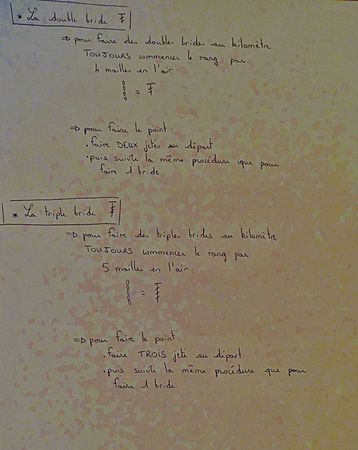 * La double bride
⇒ pour faire des doubles brides au kilomètre
TOUJOURS commencer le rang par
4 mailles en l'air.
=
⇒ pour faire le point :
• faire DEUX jetés au départ
• puis suivre la même procédure que pour
faire 1 bride
* La triple bride
⇒ pour faire des triples brides au kilomètre
TOUJOURS commencer le rang par
5 mailles en l'air.
=
⇒ pour faire le point :
• faire TROIS jeté au départ
• puis suivre la même procédure que pour
faire 1 bride